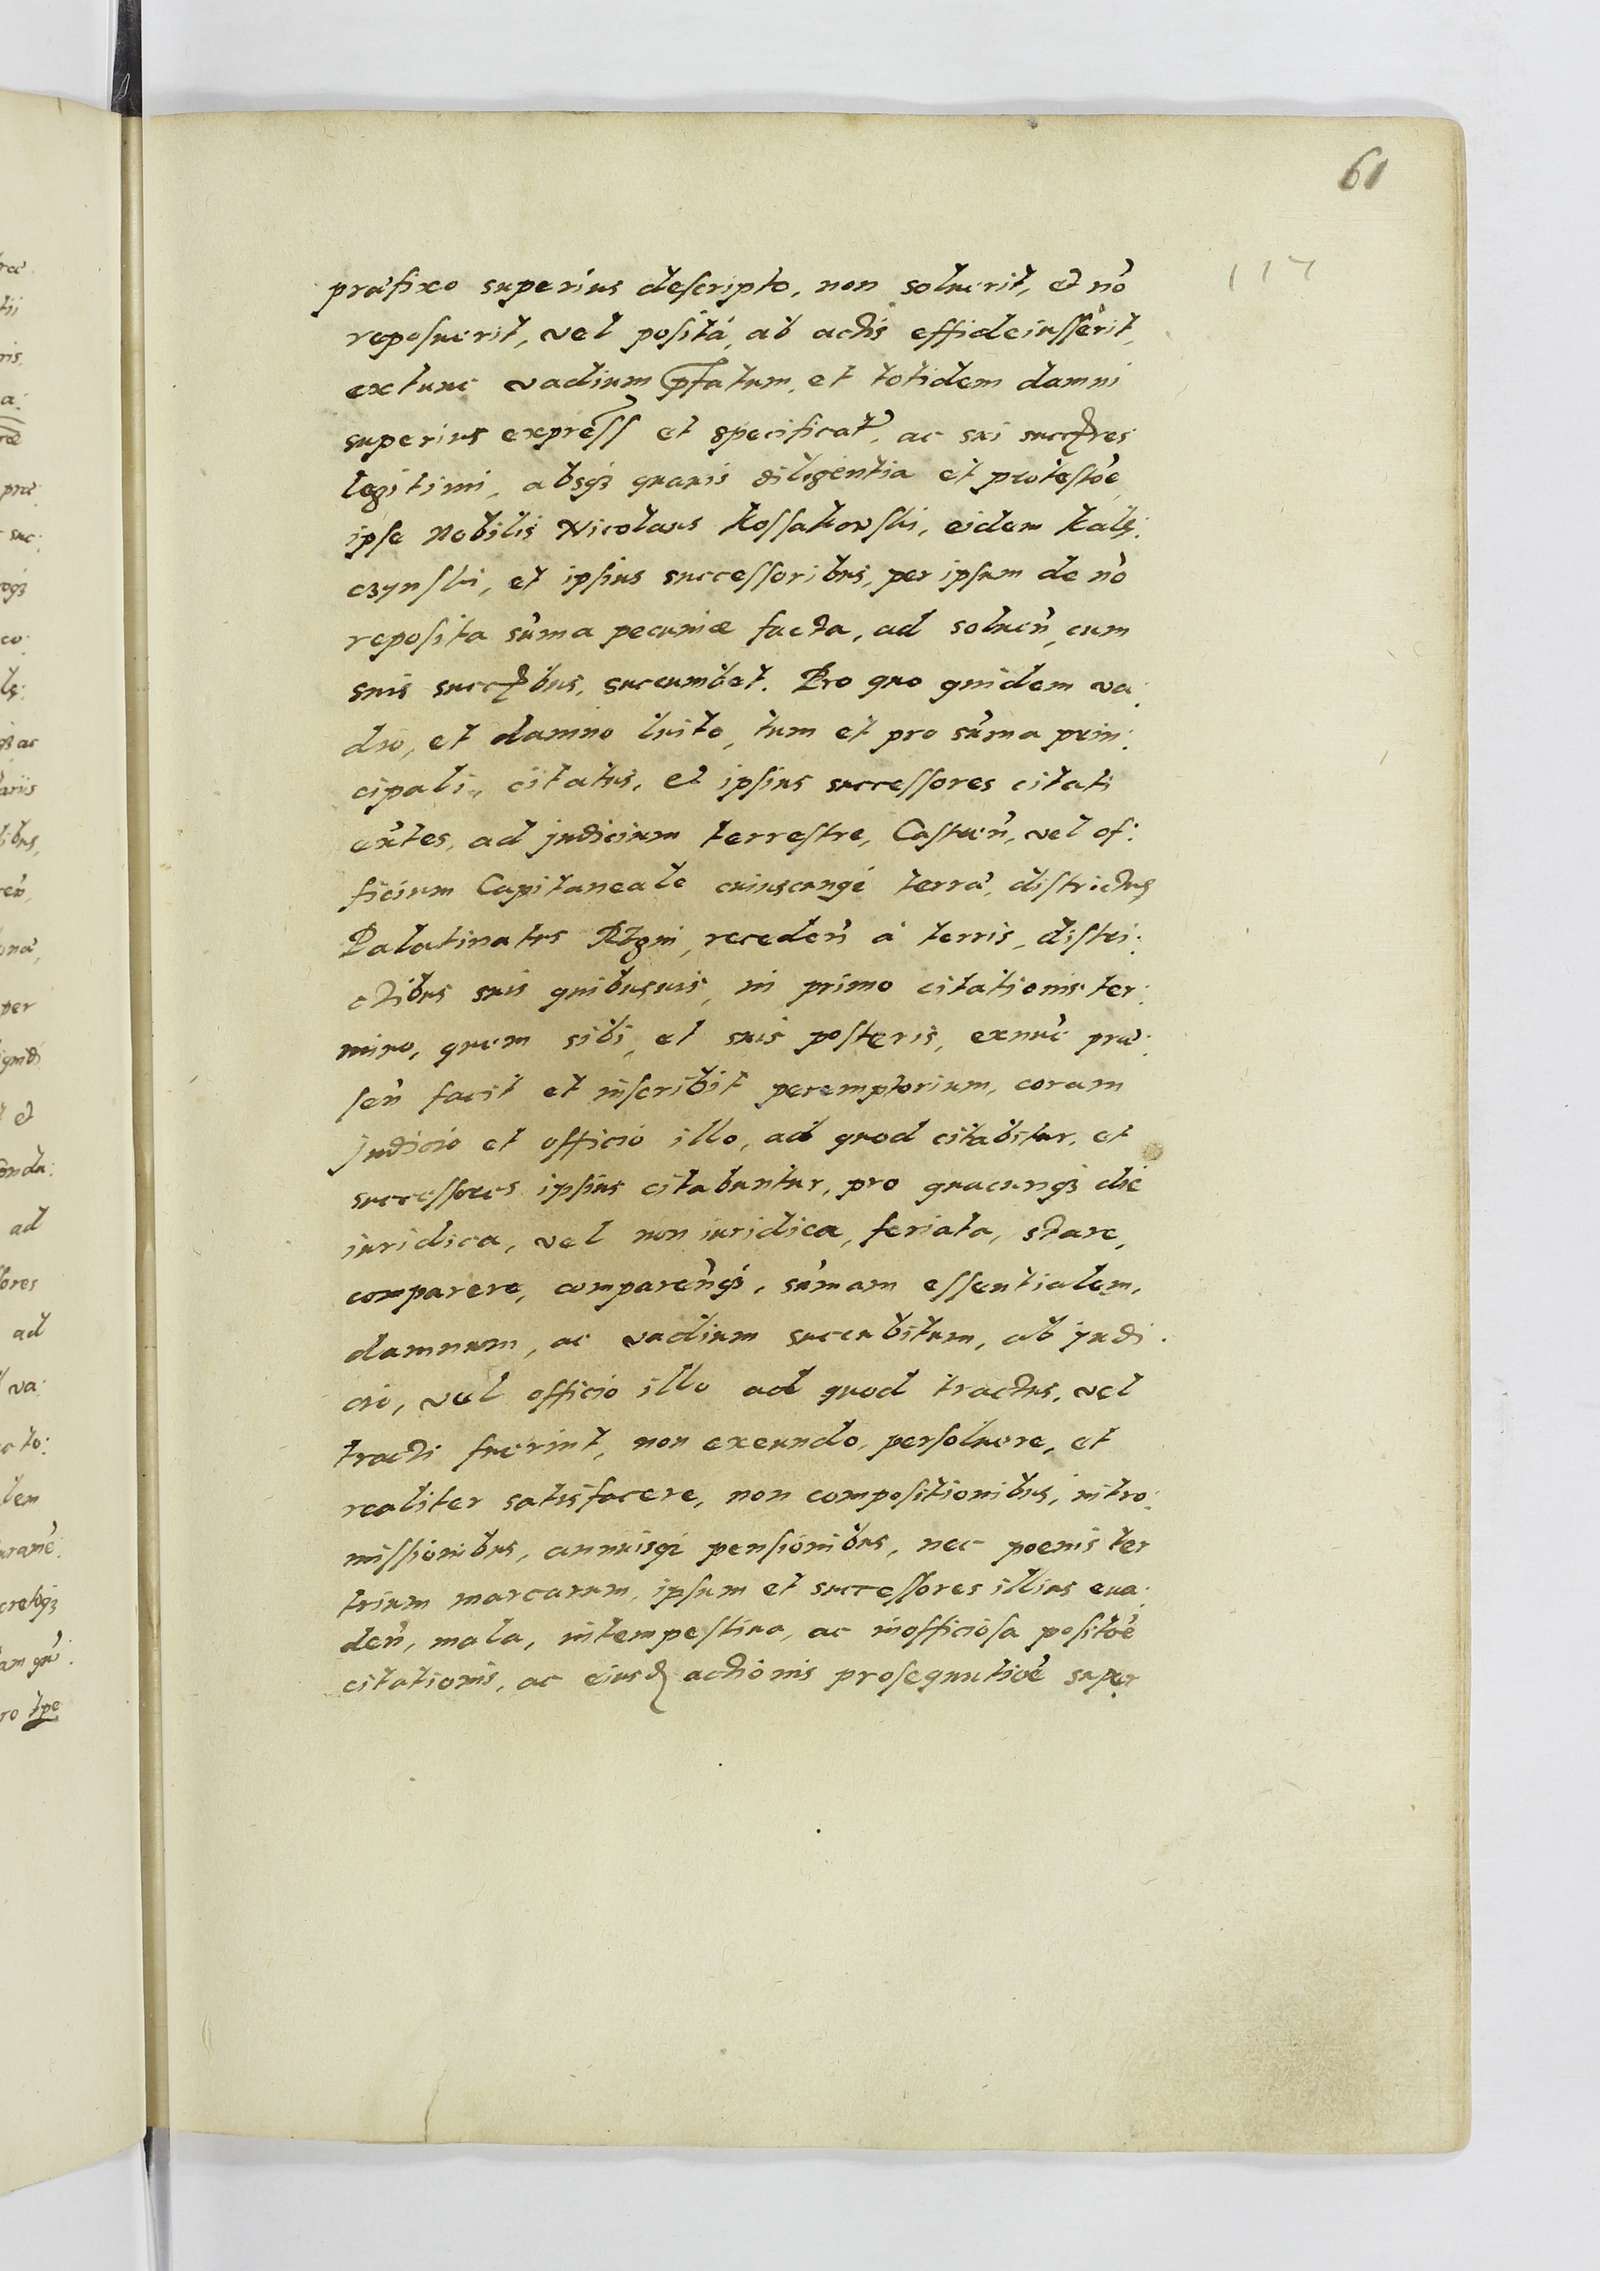 61
117
præfixo superius descripto, non soluerit, et nō
reposuerit, vel positā, ab actis effideiusserit,
extunc vadium pfatum, et totidem damni
superius express et specificat, ac sui succres
legitimi, absq3 quauis diligentia et protestōe,
ipse Nobilis Nicolaus Kossakowski, eidem Kalę:
czynski, et ipsius successoribus, per ipsum de nō
reposita sūma pecuniæ facta, ad soluēn, cum
suis succbus, succumbet. Pro quo quidem va:
dio, et damno luito, tum et pro sūma prin:
cipali, citatus, et ipsius successores citati
exñtes, ad judicium terrestre, Castreñ, vel of:
ficium Capitaneale cuiuscunq3 terræ, districtus,
Palatinatus Regni, recedeñ à terris, distri:
ctibus suis quibusuis, in primo citationis ter:
mino, quem sibi, et suis posteris, exnūc præ:
señ facit et inscribit peremptorium, coram
Judicio et officio illo, ad quod citabitur, et
successores ipsius citabuntur, pro quacunq3 die
iuridica, vel non iuridica, feriata, stare,
comparere, compareñq3, sūmam essentialem,
damnum, ac vadium succubitum, ab judi:
cio, vel officio illo ad quod tractus, vel
tracti fuerint, non exeundo, persoluere, et
realiter satisfacere, non compositionibus, intro:
missionibus, annuisq3 pensionibus, nec poenis ter
trium marcarum, ipsum et successores illius eua:
deñ, mala, intempestiua, ac inofficiosa positōe
citationis, ac eiusd actionis prosequutiōe super